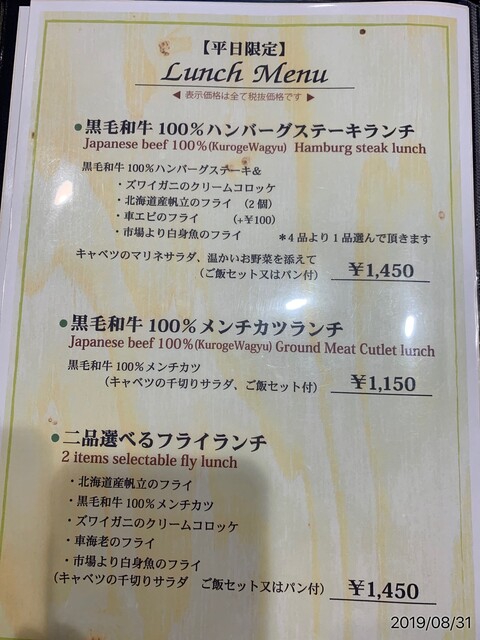 【平日限定】
Lunch Menu
◀ 表示価格は全て税抜価格です ▶
●黒毛和牛100%ハンバーグステーキランチ
Japanese beef 100%(KurogeWagyu) Hamburg steak lunch
黒毛和牛100%ハンバーグステーキ&
・ズワイガニのクリームコロッケ
・北海道産帆立のフライ (2個)
・車エビのフライ (+¥100)
・市場より白身魚のフライ *4品より1品選んで頂きます
キャベツのマリネサラダ、温かいお野菜を添えて
(ご飯セット又はパン付) ¥1,450
●黒毛和牛100%メンチカツランチ
Japanese beef 100%(KurogeWagyu) Ground Meat Cutlet lunch
黒毛和牛100%メンチカツ
(キャベツの千切りサラダ、ご飯セット付) ¥1,150
●二品選べるフライランチ
2 items selectable fly lunch
・北海道産帆立のフライ
・黒毛和牛100%メンチカツ
・ズワイガニのクリームコロッケ
・車海老のフライ
・市場より白身魚のフライ
(キャベツの千切りサラダ ご飯セット又はパン付) ¥1,450
2019/08/31